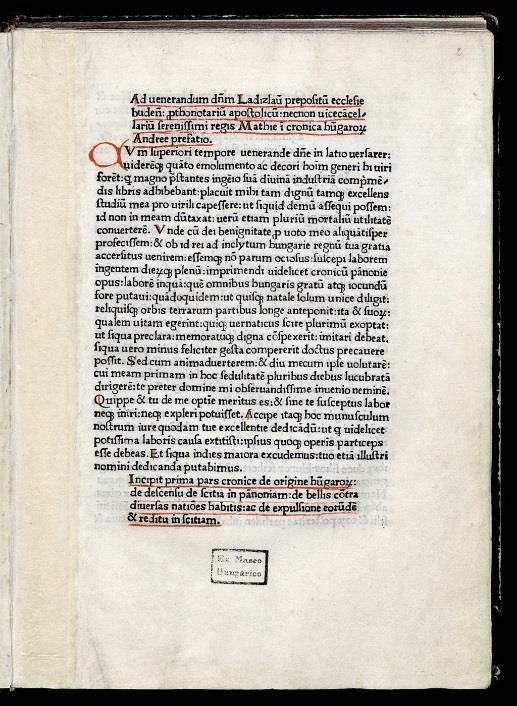 2
Ad uenerandum dn̄m Ladizlaū prepositū ecclesie
budeñ: ꝓthonotariū apostolicū: necnon uicecācel⸗
lariū serenissimi regis Mathie i cronica hūgaroꝝ
Andree prefatio.
QVm superiori tempore uenerande dn̄e in latio uersarer:
uideremqꝫ quāto emolumento ac decori hoīm generi hi uiri
forēt: q̄ magno p̄stantes ingēio suā diuīna industriā compmē⸗
dis libris adhibebant: placuit mihi tam dignū tamqꝫ excellens
studiū mea pro uirili capessere: ut siquid demū assequi possem:
id non in meam dūtaxat: uerū etiam pluriū mortaliū utilitatē
conuerterē. Vnde cū dei benignitate, p uoto meo aliquātisper
profecissem: & ob id rei ad inclytum hungarie regnū tua gratia
accersitus uenirem: essemqꝫ nō parum ociosus: suscepi laborem
ingentem dieꝝqꝫ plenū: imprimendi uidelicet cronicū pānonie
opus: laborē inquā: quē omnibus hungaris gratū atqꝫ iocundū
fore putaui: quādoquidem: ut quisqꝫ natale solum unice diligit:
reliquisqꝫ orbis terrarum partibus longe anteponit: ita & suoꝝ:
qualem uitam egerint: quiqꝫ uernaticus scire plurimū exoptat:
ut siqua preclara: memoratuqꝫ digna cōspexerit: imitari debeat.
siqua uero minus feliciter gesta compererit doctus precauere
possit. Sed cum animaduerterem: & diu mecum ipse uolutarē:
cui meam primam in hoc sedulitatē pluribus diebus lucubratā
dirigerē: te preter domine mi obseruandissime inuenio neminē.
Quippe & tu de me optīe meritus es: & sine te susceptus labor
neqꝫ iniri: neqꝫ expleri potuisset. Accipe itaqꝫ hoc munusculum
nostrum iure quodam tue excellentie dedicādū: ut q uidelicet
potissima laboris causa extitisti: ipsius quoqꝫ operis particeps
esse debeas. Et siqua indies maiora excudemus: tuo etiā illustri
nomini dedicanda putabimus.
Incipit prima pars cronice de origine hūgaroꝝ:
de descensu de scitia in pānoniam: de bellis cōtra
diuersas natiōes habitis: ac de expulsione eorūdē
& reditu in scitiam.
Ex Museo
Hungarico